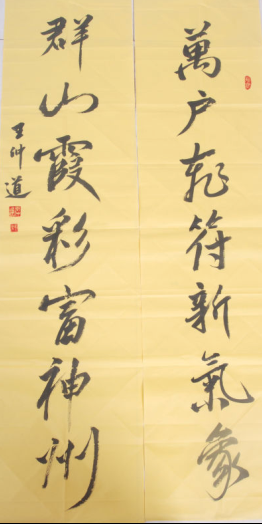 萬户桃符新氣象
群山霞彩富神州
王仲道